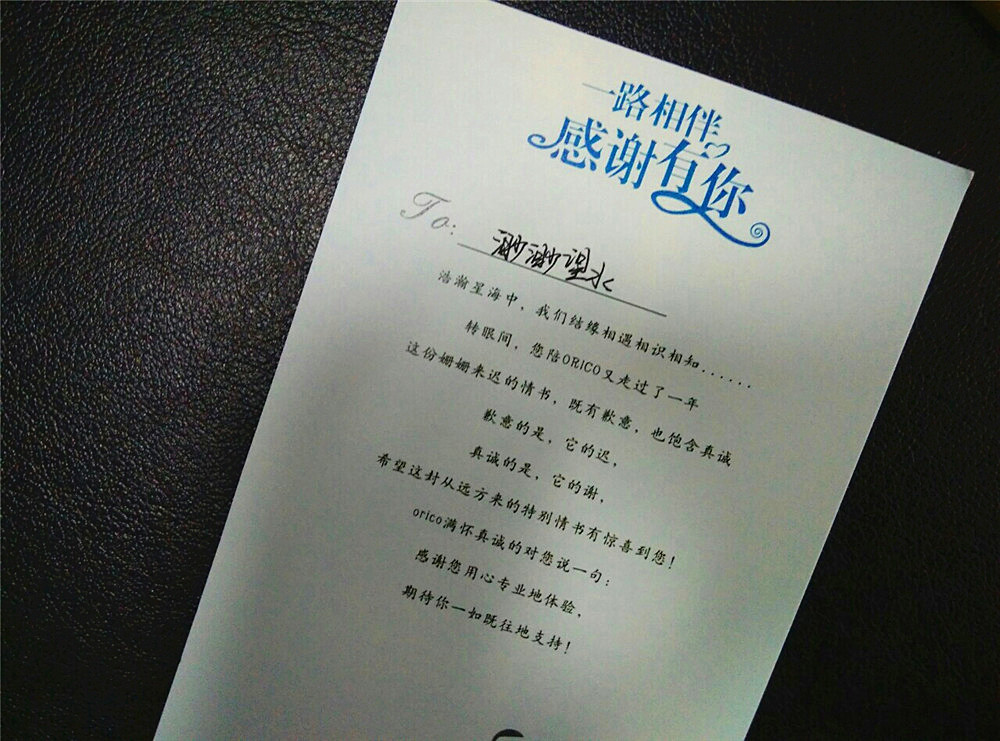 一路相伴
感谢有你
To: 渺渺望水
浩瀚星海中，我们结缘相遇相识相知......
转眼间，您陪ORICO又走过了一年
这份姗姗来迟的情书，既有歉意，也饱含真诚
歉意的是，它的迟，
真诚的是，它的谢，
希望这封从远方来的特别情书有惊喜到您！
orico满怀真诚的对您说一句：
感谢您用心专业地体验，
期待你一如既往地支持！